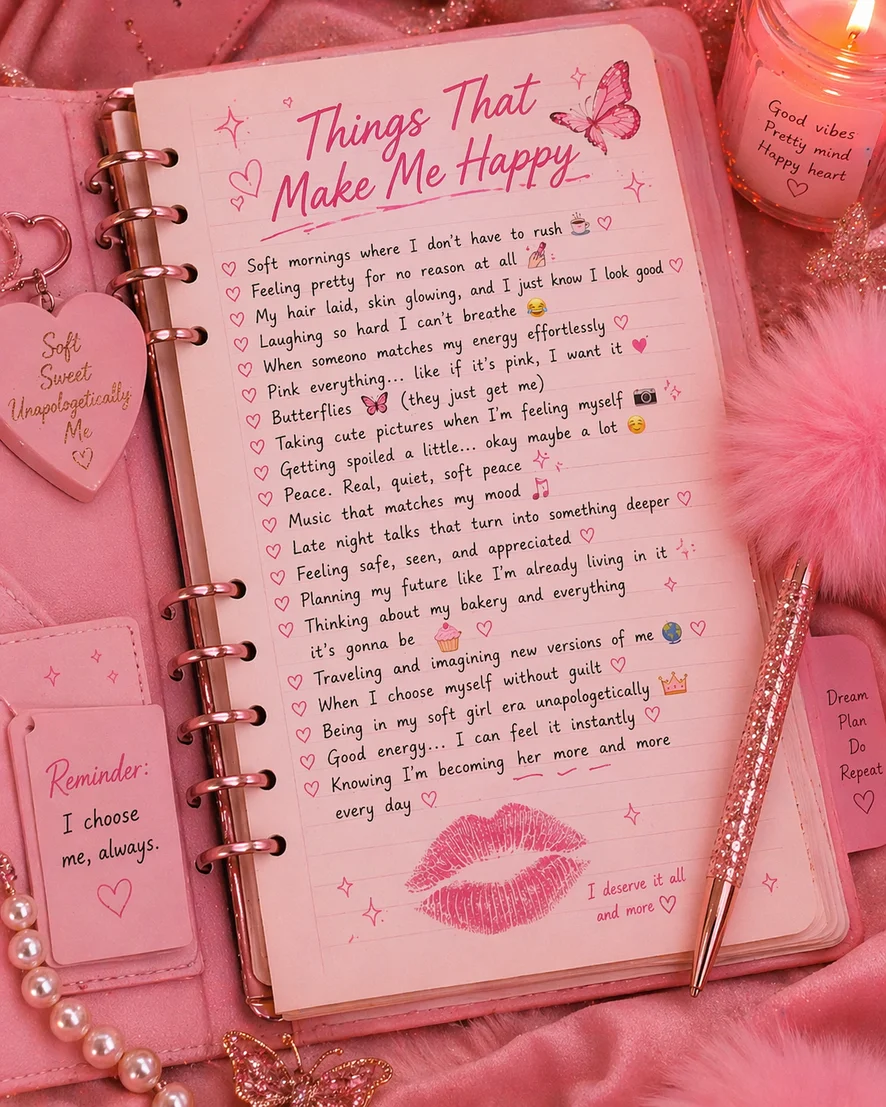 Things That
Make Me Happy
Soft mornings where I don't have to rush ☕ ♡
♡ Feeling pretty for no reason at all 💅
♡ My hair laid, skin glowing, and I just know I look good ♡
♡ Laughing so hard I can't breathe 😂
♡ When someono matches my energy effortlessly ♡
♡ Pink everything... like if it's pink, I want it ♥
♡ Butterflies 🦋 (they just get me)
♡ Taking cute pictures when I'm feeling myself 📷
♡ Getting spoiled a little... okay maybe a lot ☺️
♡ Peace. Real, quiet, soft peace
♡ Music that matches my mood 🎵
♡ Late night talks that turn into something deeper ♡
♡ Feeling safe, seen, and appreciated ♡
♡ Planning my future like I'm already living in it
♡ Thinking about my bakery and everything
it's gonna be 🧁 ♡
♡ Traveling and imagining new versions of me 🌎 ♡
♡ When I choose myself without guilt ♡
♡ Being in my soft girl era unapologetically 👑
♡ Good energy... I can feel it instantly ♡
♡ Knowing I'm becoming her more and more
every day ♡
I deserve it all
and more ♡
Good vibes
Pretty mind
Happy heart
♡
Soft
Sweet
Unapologetically
Me
♡
Reminder:
I choose
me, always.
♡
Dream
Plan
Do
Repeat
♡